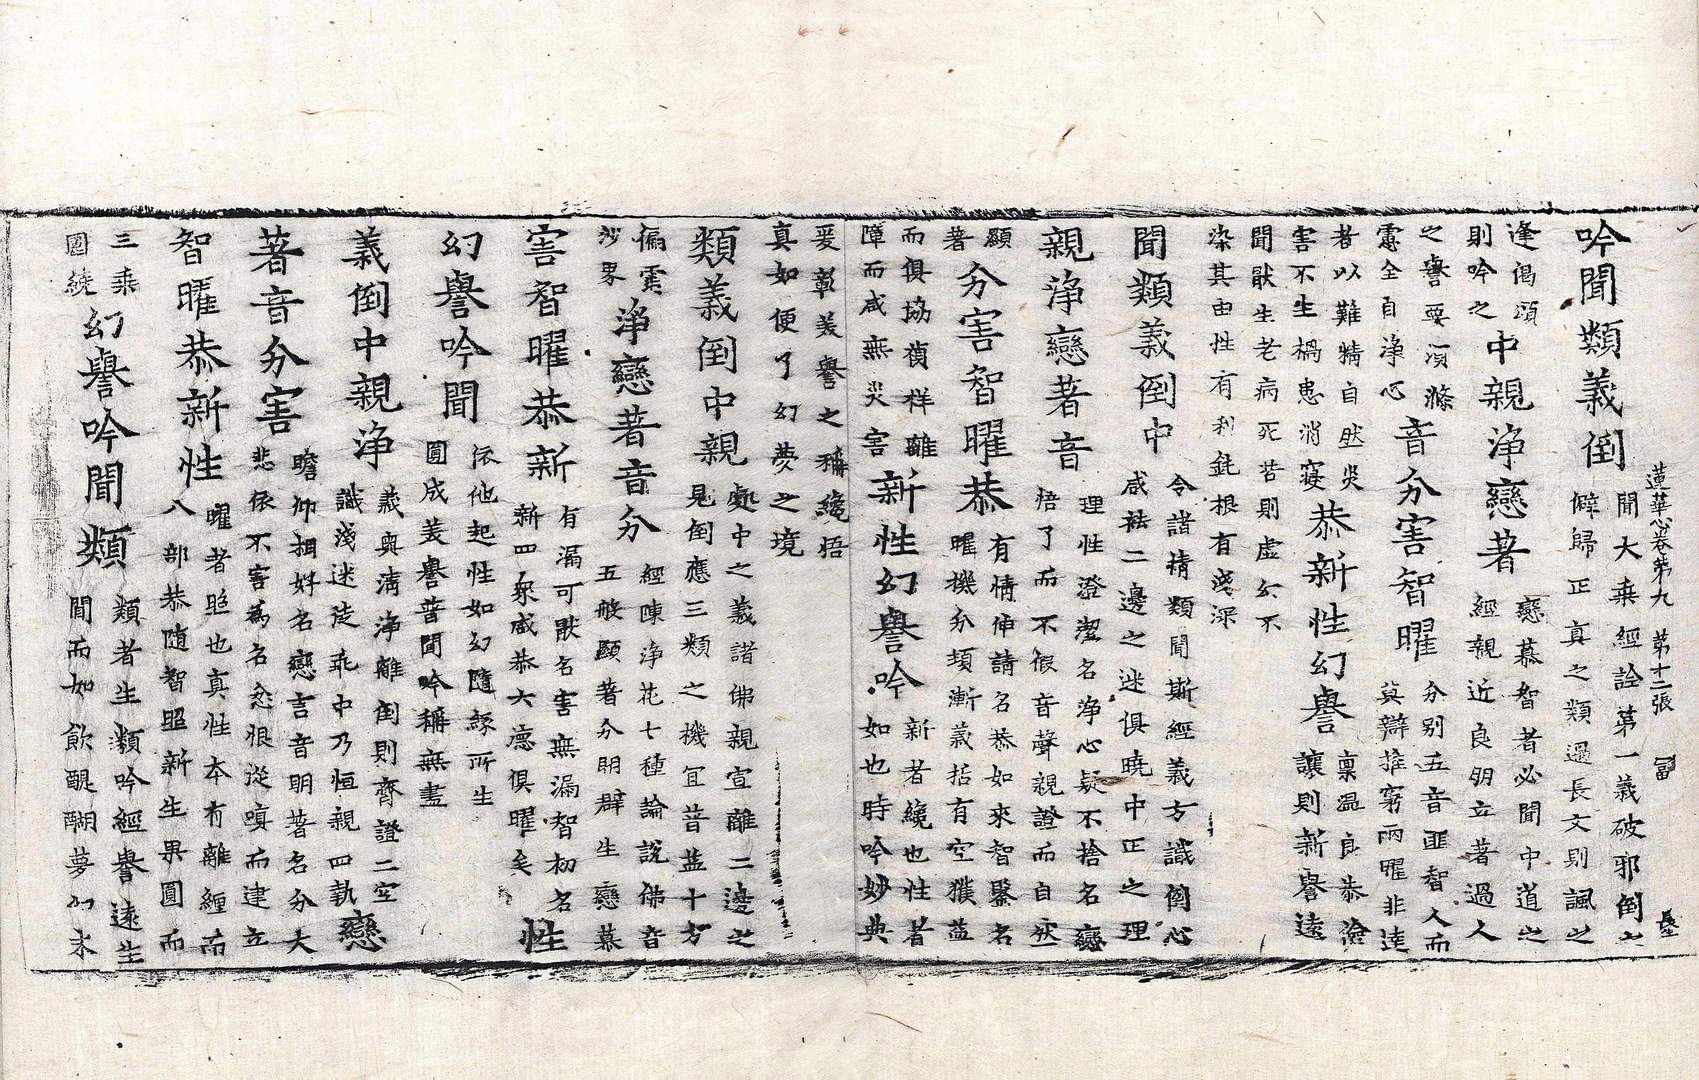 吟聞類義倒 聞大乗經詮第一義破邪倒之
僻歸正真之類遇長文則諷之
蓮華心卷第九 第十二張 冨
逢偈頌
則吟之 中親淨戀著 戀慕智者必聞中道之
經親近良朋立著過人
之譽要須滌
慮全自淨心 音分害智曜 分別五音匪智人而
莫辯推窮兩曜非達
者以難精自然災
害不生禍患消寑 恭新性幻譽 禀温良恭儉
讓則新譽遠
聞猒生老病死苦則虚幻不
染其由性有利鈍根有淺深
聞類義倒中 令諸精類聞斯經義方識倒心
咸袪二邊之迷俱曉中正之理
親淨戀著音 理性澄潔名淨心疑不捨名戀
悟了而不假音聲親證而自然
顯
著 分害智曜恭 有情伸請名恭如來智鑒名
曜機分頓漸義括有空獲益
而俱協禎样離
障而咸無災害 新性幻譽吟 新者纔也性者
如也時吟妙典
爰彰美譽之稱纔悟
真如便了幻夢之境
類義倒中親 處中之義諸佛親宣離二邊之
見倒應三類之機宜普益十方
徧霑
沙界 淨戀著音分 經陳淨花七種論說佛音
五般顯著分明群生戀慕
害智曜恭新 有漏可猒名害無漏智初名
新四衆咸恭六德俱曜矣 性
幻譽吟聞 依他起性如幻隨緣所生
圓成美譽普聞吟稱無盡
義倒中親淨 義與清淨離倒則齊證二空
識淺迷徒乖中乃恒親四執 戀
著音分害 瞻仰相好名戀言音明著名分大
悲依不害為名忿恨從嗔而建立
智曜恭新性 曜者照也真性本有離纏而
八部恭隨智照新生果圓而
三乘
圍繞 幻譽吟聞類 類者生類吟經譽遠生
聞而如飲醍醐夢幻未